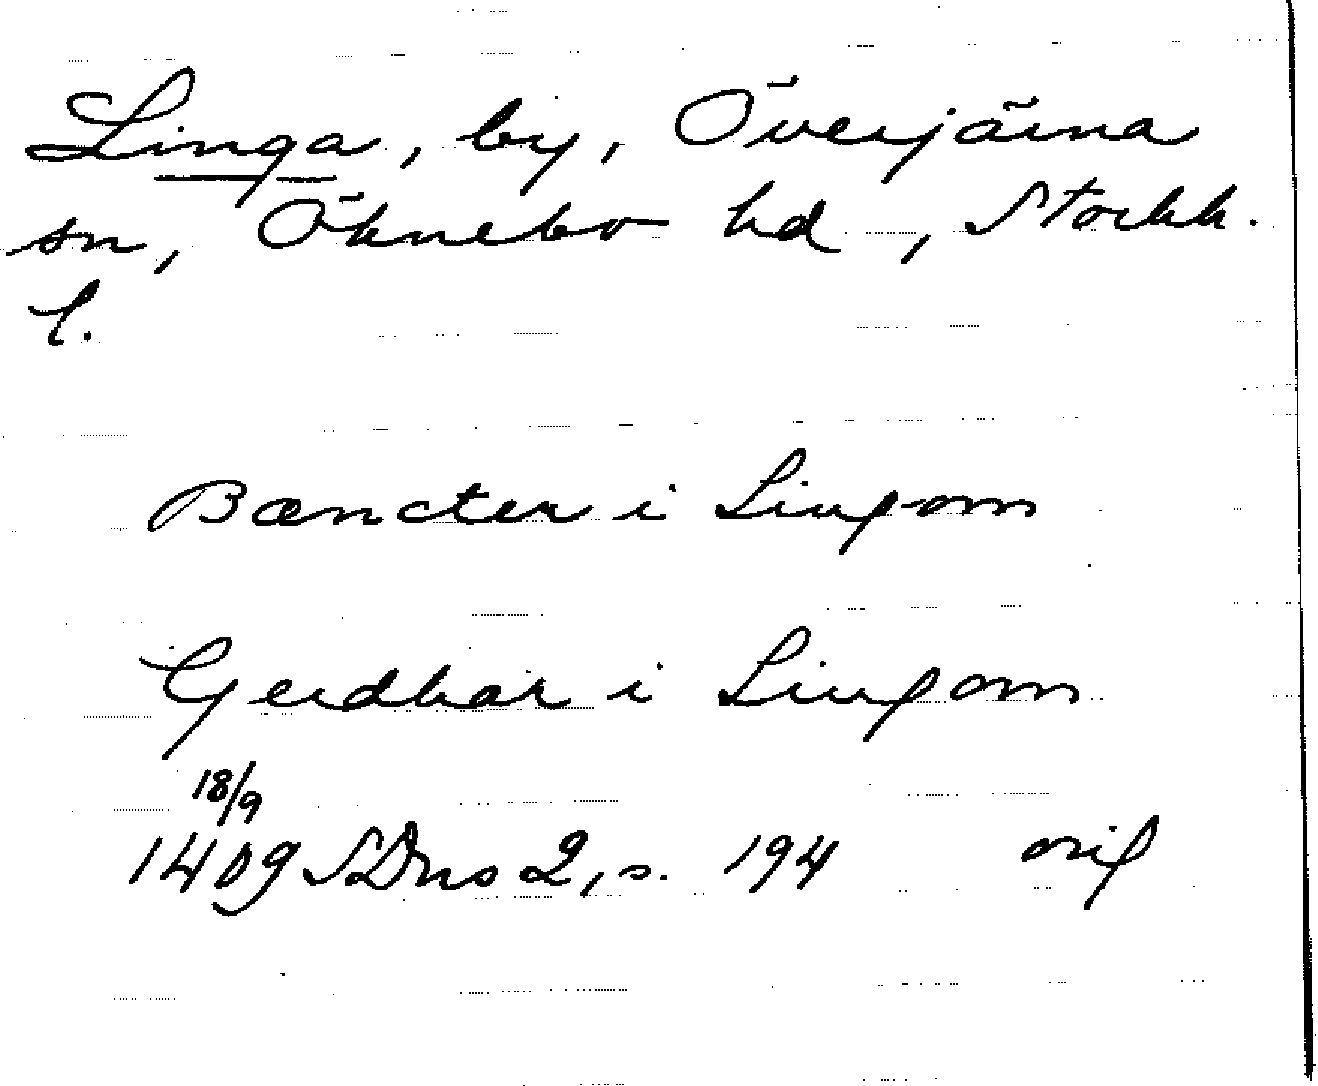 Linga, by, Överjärna
sn, Öknebo hd, Stockh.
l.
Bæncter i Lingom
Gerdhar i Lingom
18/9
1409 SDns 2, s. 194 orig